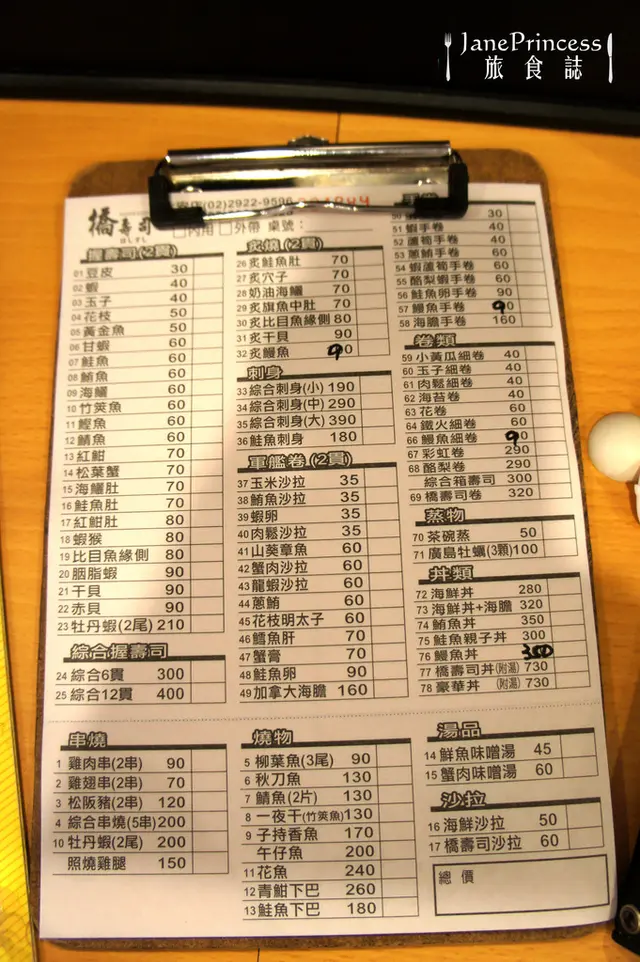 JanePrincess
旅食誌
橋壽司
(02)2922-9596
內用 外帶 桌號：
握壽司(2貫)
01 豆皮 30
02 蝦 40
03 玉子 40
04 花枝 50
05 黃金魚 50
06 甘蝦 60
07 鮭魚 60
08 鮪魚 60
09 海鱺 60
10 竹筴魚 60
11 鰹魚 60
12 鯖魚 60
13 紅魽 70
14 松葉蟹 70
15 海鱺肚 70
16 鮭魚肚 70
17 紅魽肚 80
18 蝦猴 80
19 比目魚緣側 80
20 胭脂蝦 90
21 干貝 90
22 赤貝 90
23 牡丹蝦(2尾) 210
綜合握壽司
24 綜合6貫 300
25 綜合12貫 400
炙燒(2貫)
26 炙鮭魚肚 70
27 炙穴子 70
28 奶油海鱺 70
29 炙旗魚中肚 70
30 炙比目魚緣側 80
31 炙干貝 90
32 炙鰻魚 90
刺身
33 綜合刺身(小) 190
34 綜合刺身(中) 290
35 綜合刺身(大) 390
36 鮭魚刺身 180
軍艦卷(2貫)
37 玉米沙拉 35
38 鮪魚沙拉 35
39 蝦卵 35
40 肉鬆沙拉 35
41 山葵章魚 60
42 蟹肉沙拉 60
43 龍蝦沙拉 60
44 蔥鮪 60
45 花枝明太子 60
46 鱈魚肝 70
47 蟹膏 70
48 鮭魚卵 90
49 加拿大海膽 160
50 30
51 蝦手卷 40
52 蘆筍手卷 40
53 蔥鮪手卷 60
54 蝦蘆筍手卷 60
55 酪梨蝦手卷 60
56 鮭魚卵手卷 90
57 鰻魚手卷 90
58 海膽手卷 160
卷類
59 小黃瓜細卷 40
60 玉子細卷 40
61 肉鬆細卷 40
62 海苔卷 40
63 花卷 60
64 鐵火細卷 60
66 鰻魚細卷 90
67 彩虹卷 290
68 酪梨卷 290
綜合箱壽司 300
69 橋壽司卷 320
蒸物
70 茶碗蒸 50
71 廣島牡蠣(3顆) 100
丼類
72 海鮮丼 280
73 海鮮丼+海膽 320
74 鮪魚丼 350
75 鮭魚親子丼 300
76 鰻魚丼 350
77 橋壽司丼(附湯) 730
78 豪華丼 (附湯) 730
串燒
1 雞肉串(2串) 90
2 雞翅串(2串) 70
3 松阪豬(2串) 120
4 綜合串燒(5串) 200
10 牡丹蝦(2尾) 200
照燒雞腿 150
燒物
5 柳葉魚(3尾) 90
6 秋刀魚 130
7 鯖魚(2片) 130
8 一夜干(竹筴魚) 130
9 子持香魚 170
午仔魚 200
11 花魚 240
12 青魽下巴 260
13 鮭魚下巴 180
湯品
14 鮮魚味噌湯 45
15 蟹肉味噌湯 60
沙拉
16 海鮮沙拉 50
17 橋壽司沙拉 60
總價